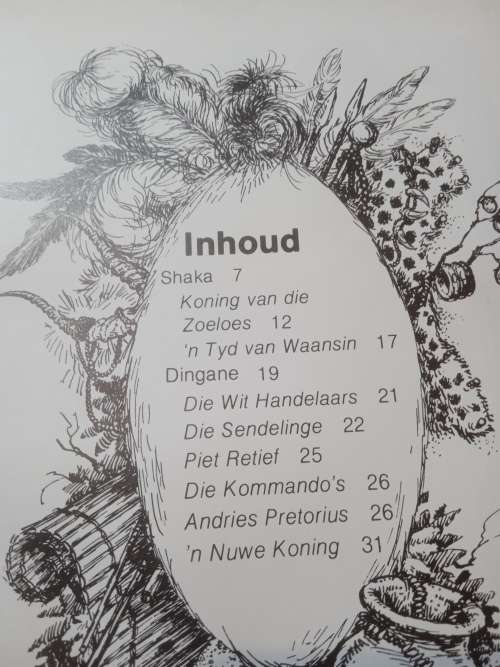 Inhoud
Shaka 7
Koning van die
Zoeloes 12
'n Tyd van Waansin 17
Dingane 19
Die Wit Handelaars 21
Die Sendelinge 22
Piet Retief 25
Die Kommando's 26
Andries Pretorius 26
'n Nuwe Koning 31